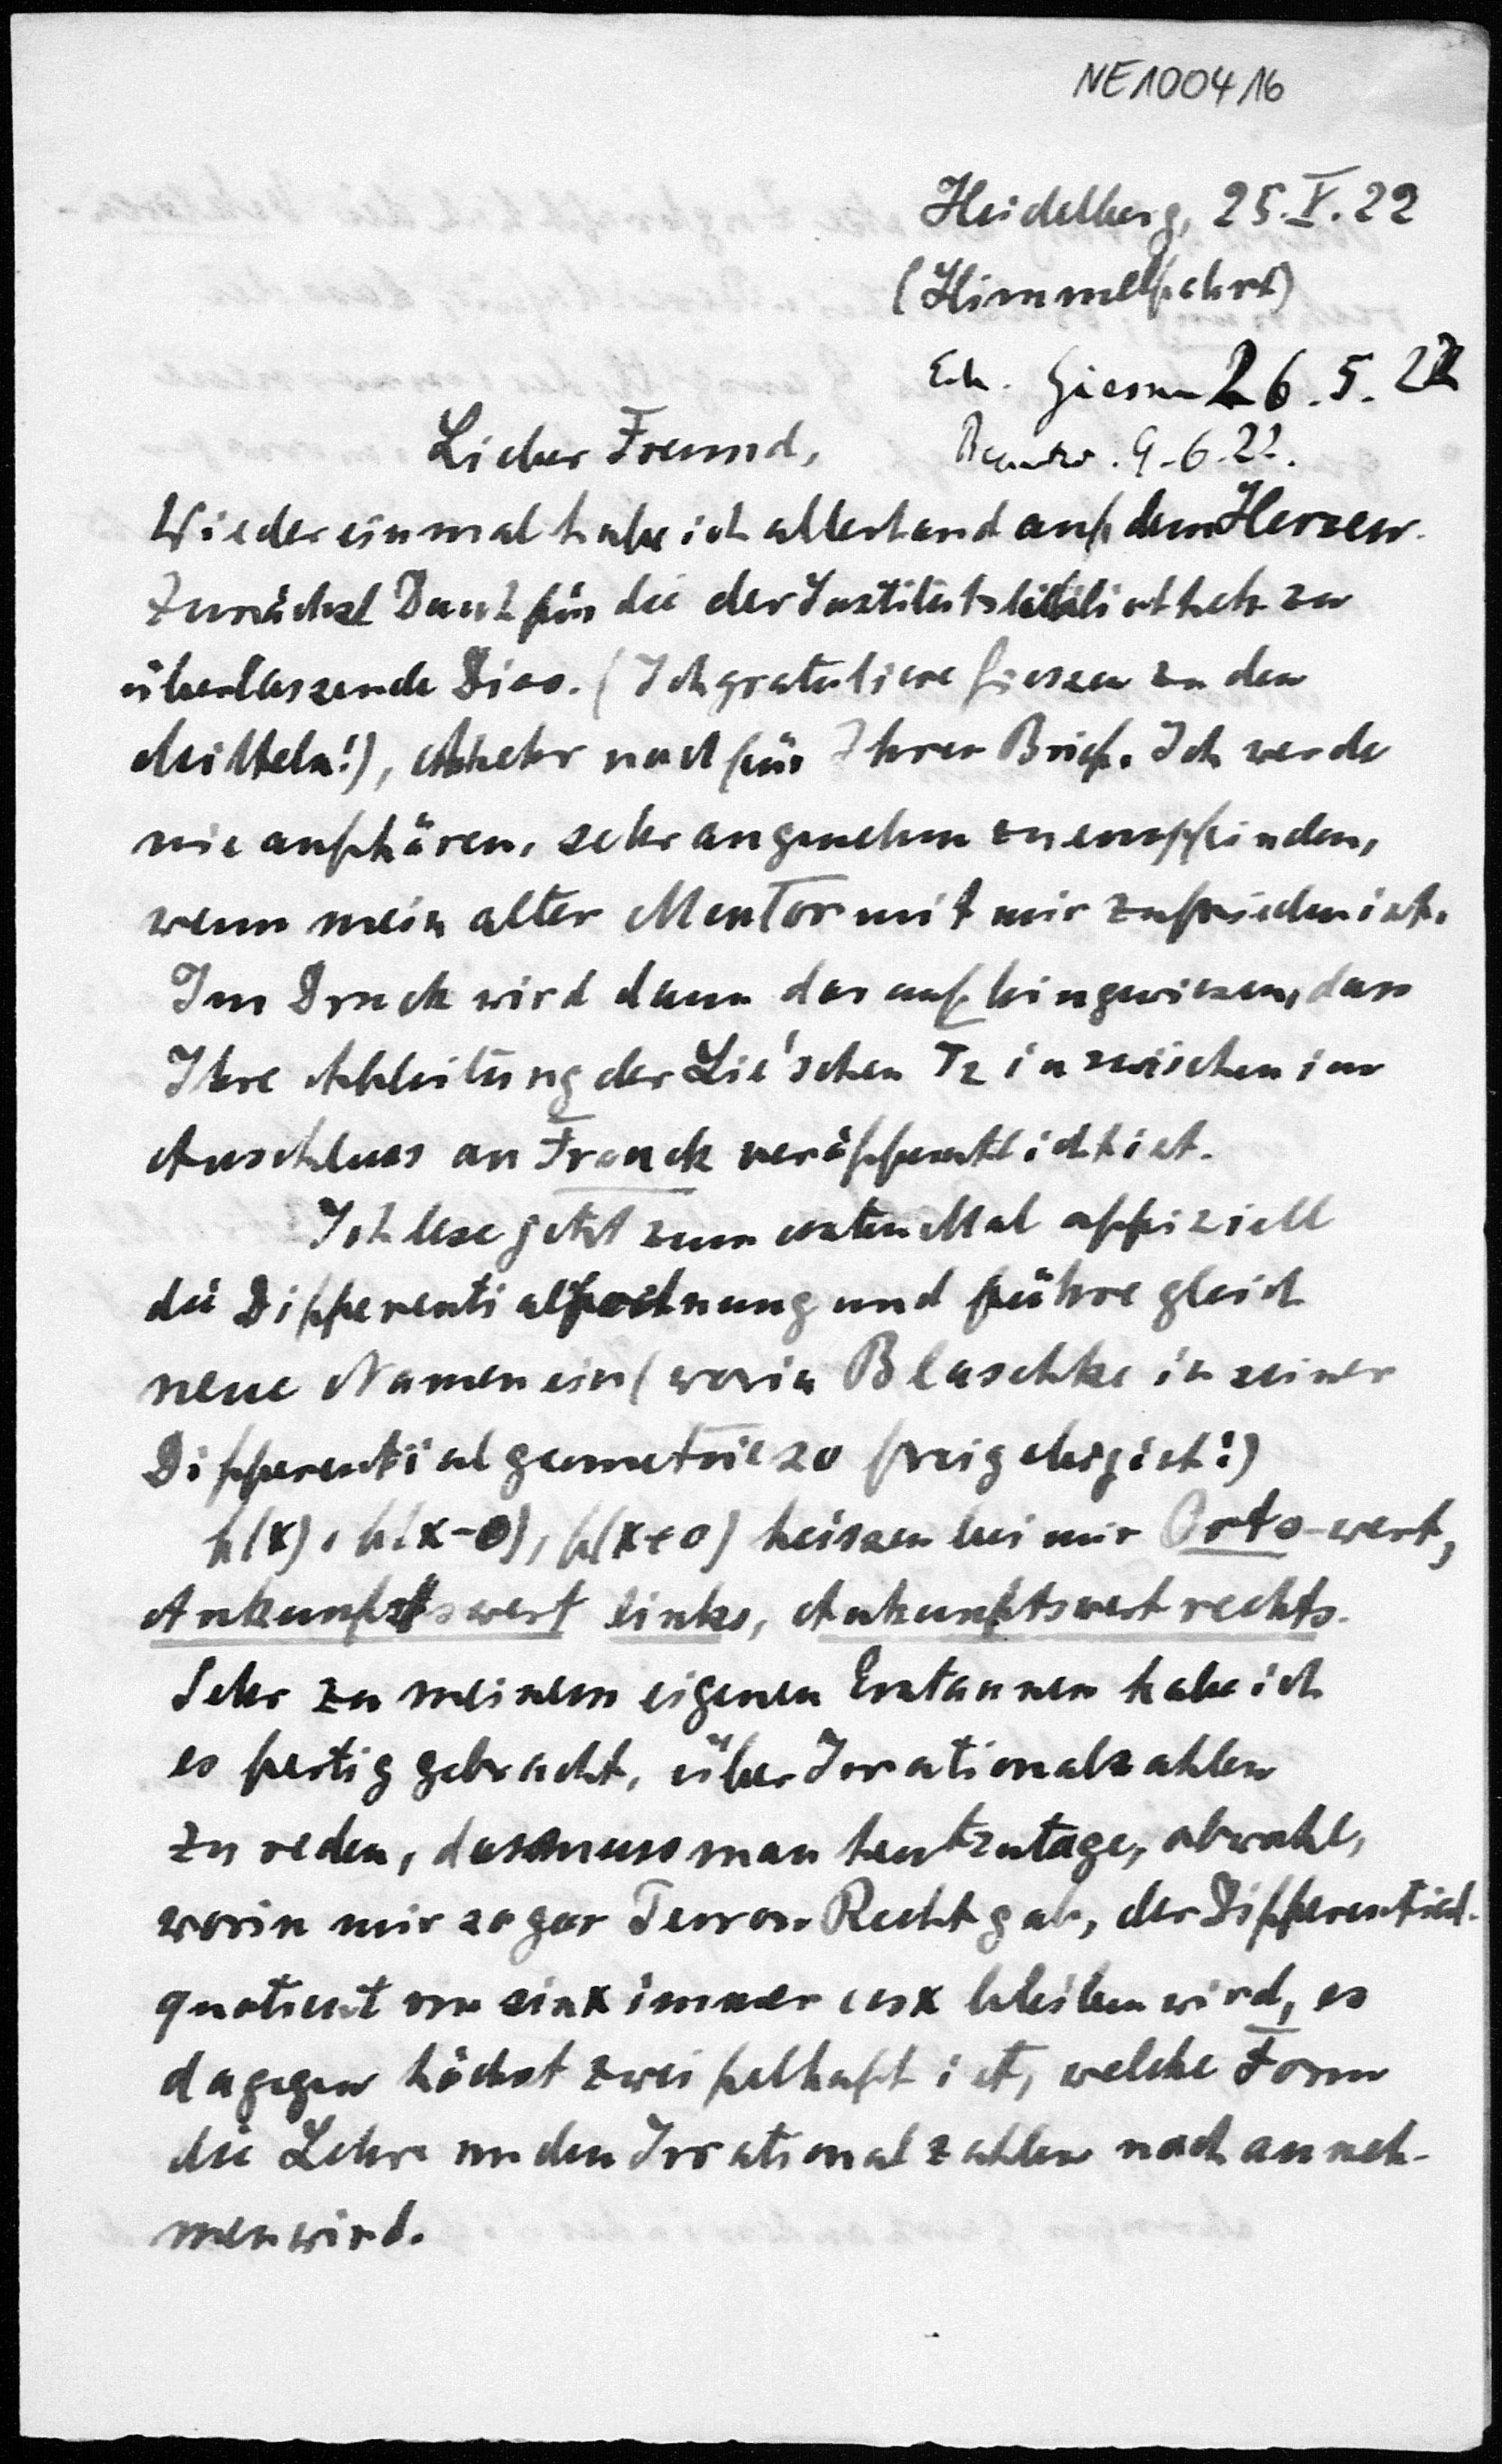 NE100416
Heidelberg, 25.V.22
(Himmelfahrt)
Erh. Giessen 26.5.22
Beantw. 9.6.22.
Lieber Freund,
Wieder einmal habe ich allerhand auf dem Herzen.
Zunächst Dank für die der Institutsbibliothek zu
überlassende Diss. (Ich gratuliere Giessen zu den
Mitteln!), Mehr noch für Ihren Brief. Ich werde
nie aufhören, sehr angenehm zu empfinden,
wenn mein alter Mentor mit mir zufrieden ist.
Im Druck wird dann darauf hingewiesen, dass
Ihre Ableitung der Lie'schen T2 inzwischen im
Anschluss an Franck veröffentlicht ist.
Ich lese jetzt zum ersten Mal offiziell
die Differentialrechnung und führe gleich
neue Namen ein (worin Blaschke in seiner
Differentialgeometrie so freigebig ist!)
f(x), f(x-0), f(x+0) heissen bei mir Orts-wert,
Ankunftswert links, Ankunftswert rechts.
Sehr zu meinem eigenen Erstaunen habe ich
es fertig gebracht, über Irrationalzahlen
zu reden, das muss man heutzutage, obwohl,
worin mir sogar Perron Recht gab, der Differential-
quotient von sin x immer cos x bleiben wird, es
dagegen höchst zweifelhaft ist, welche Form
die Lehre von den Irrationalzahlen noch anneh-
men wird.